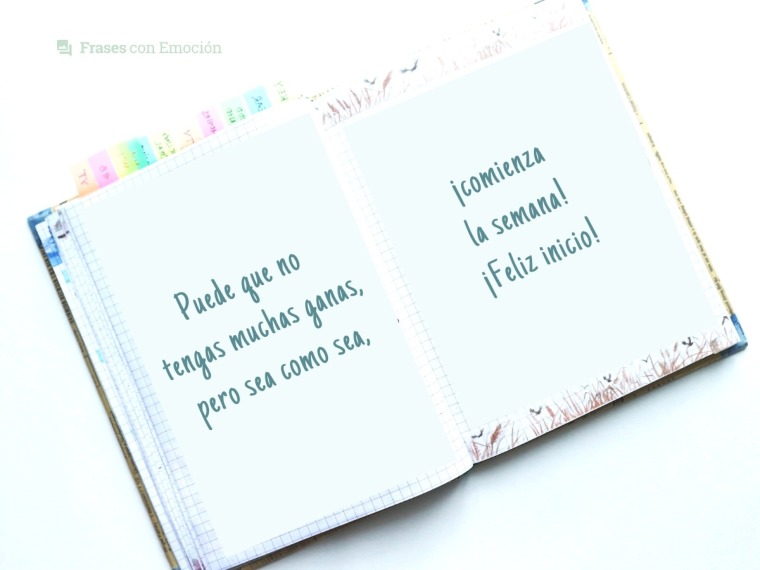 Frases con Emoción
Puede que no
tengas muchas ganas,
pero sea como sea,
¡comienza
la semana!
¡Feliz inicio!